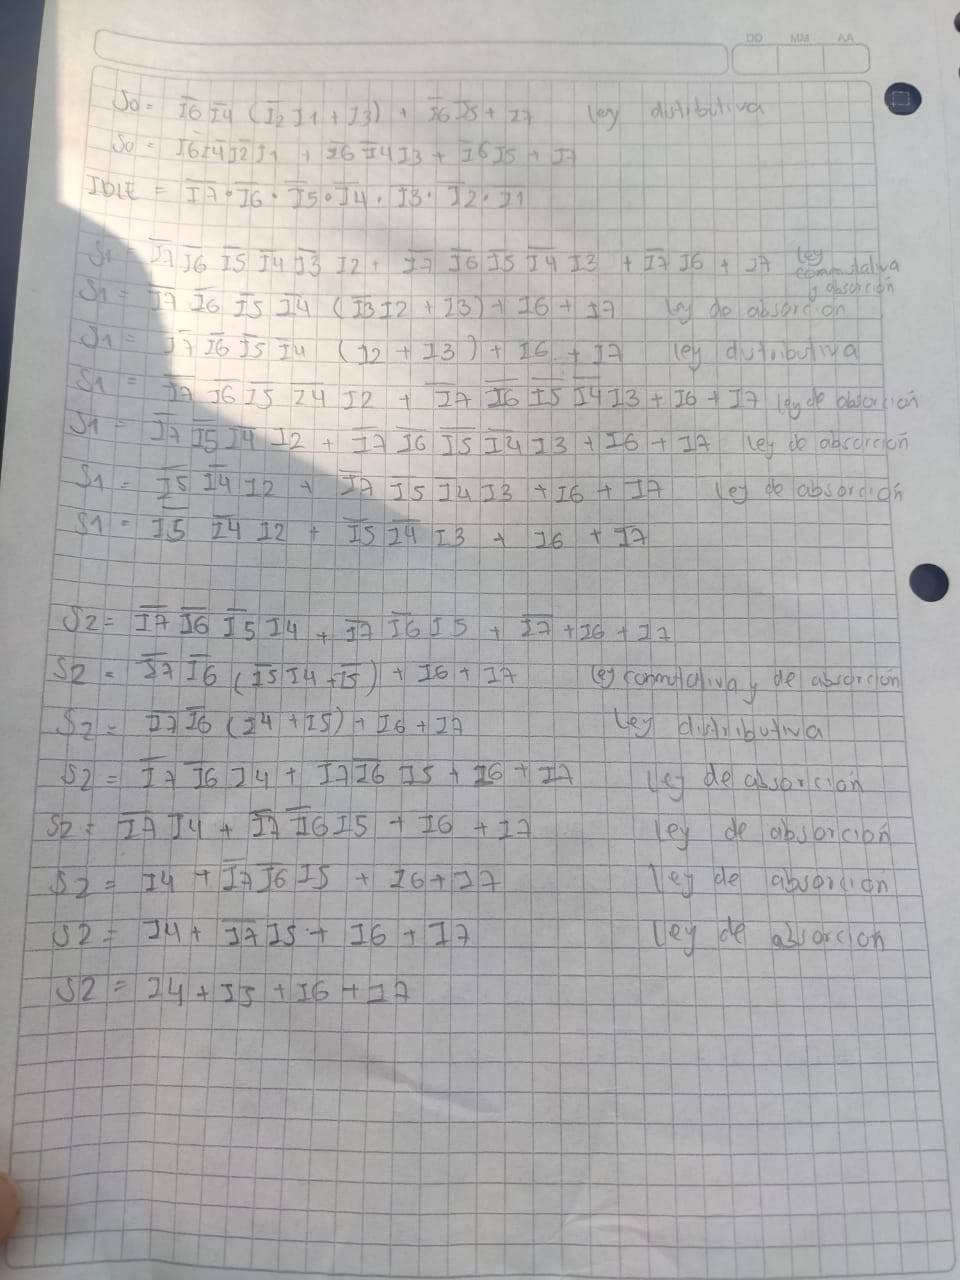 DD MM AA
S0 = I̅6 I̅4 (I̅2 I1 + I3) + I̅6 I5 + I7 Ley distributiva
S0 = I̅6 I̅4 I̅2 I1 + I̅6 I̅4 I3 + I̅6 I5 + I7
IDLE = I̅7 • I̅6 • I̅5 • I̅4 • I̅3 • I̅2 • I̅1
S1 = I̅7 I̅6 I̅5 I̅4 I̅3 I2 + I̅7 I̅6 I̅5 I̅4 I3 + I̅7 I6 + I7 Ley conmutativa y absorción
S1 = I̅7 I̅6 I̅5 I̅4 (I̅3 I2 + I3) + I6 + I7 Ley de absorción
S1 = I̅7 I̅6 I̅5 I̅4 (I2 + I3) + I6 + I7 Ley distributiva
S1 = I̅7 I̅6 I̅5 I̅4 I2 + I̅7 I̅6 I̅5 I̅4 I3 + I6 + I7 Ley de absorción
S1 = I̅7 I̅5 I̅4 I2 + I̅7 I̅6 I̅5 I̅4 I3 + I6 + I7 Ley de absorción
S1 = I̅5 I̅4 I2 + I̅7 I̅5 I̅4 I3 + I6 + I7 Ley de absorción
S1 = I̅5 I̅4 I2 + I̅5 I̅4 I3 + I6 + I7
S2 = I̅7 I̅6 I̅5 I4 + I̅7 I̅6 I5 + I̅7 + I6 + I7
S2 = I̅7 I̅6 (I̅5 I4 + I̅5) + I6 + I7 Ley conmutativa y de absorción
S2 = I̅7 I̅6 (I4 + I5) + I6 + I7 Ley distributiva
S2 = I̅7 I̅6 I4 + I̅7 I̅6 I5 + I6 + I7 Ley de absorción
S2 = I̅7 I4 + I̅7 I̅6 I5 + I6 + I7 Ley de absorción
S2 = I4 + I̅7 I̅6 I5 + I6 + I7 Ley de absorción
S2 = I4 + I̅7 I5 + I6 + I7 Ley de absorción
S2 = I4 + I5 + I6 + I7